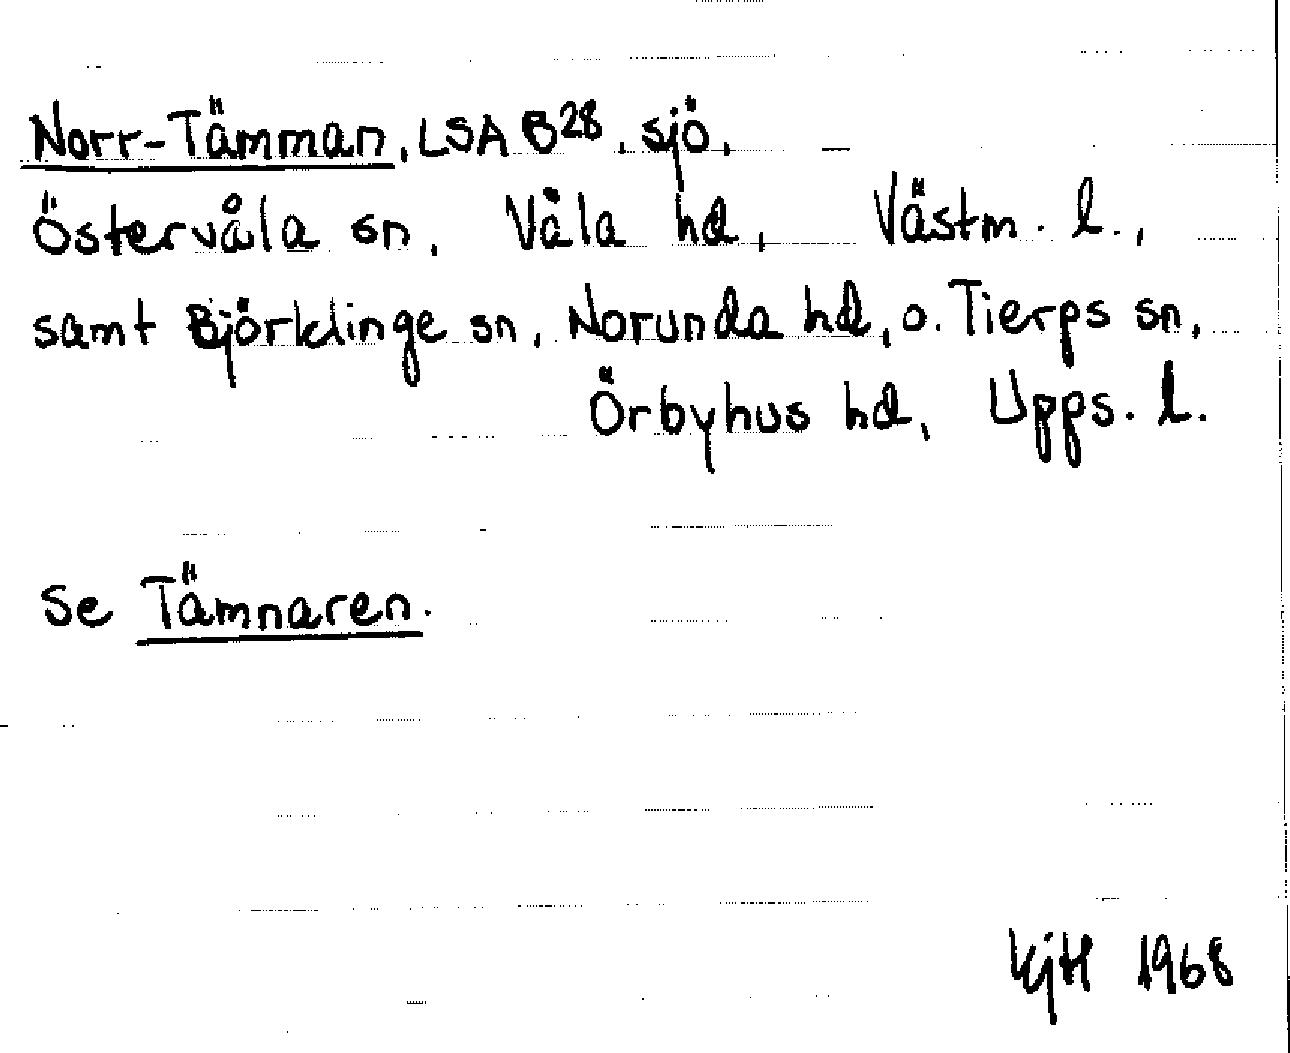 Norr-Tämman, LSA B28, sjö,
Östervåla sn, Våla hd, Västm. l.,
samt Björklinge sn, Norunda hd, o. Tierps sn,
Örbyhus hd, Upps. l.
Se Tämnaren.
KjH 1968